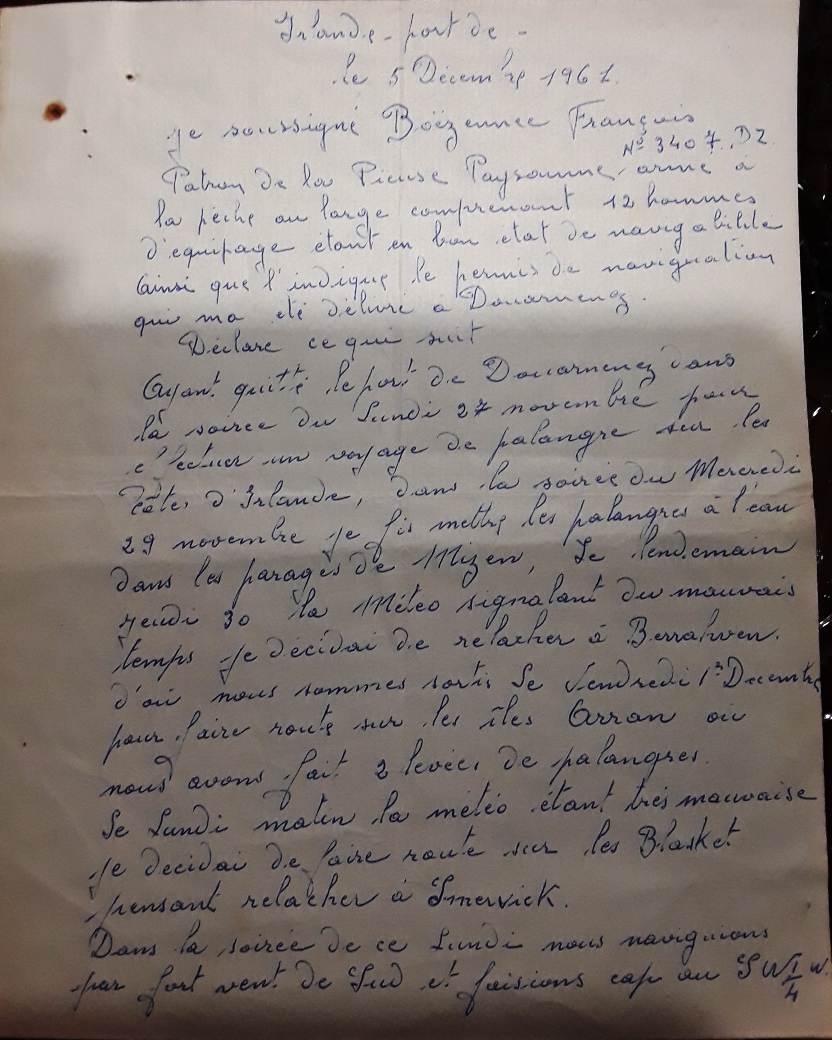 Irlande - port de -
le 5 Décembre 1961.
je soussigné Boëzennec François
N° 3407. DZ
Patron de la Pieuse Paysanne, armé à
la pèche au large comprenant 12 hommes
d'equipage étant en bon état de navigabilité
Ainsi que l'indique le permis de naviguation
qui ma été délivré a Douarnenez.
Déclare ce qui suit
Ayant quitté le port de Douarnenez dans
la soirée du Lundi 27 novembre pour
effectuer un voyage de palangre sur les
Côtes d'Irlande, dans la soirée du Mercredi
29 novembre je fis mettre les palangres à l'eau
dans les parages de Mizen, Le lendemain
jeudi 30 la Méteo signalant du mauvais
temps je décidai de relacher à Berrahven.
d'où nous sommes sortis Le Vendredi 1er Decembre
pour faire route sur les îles Arran où
nous avons fait 2 levées de palangres.
Le Lundi matin la météo étant très mauvaise
je decidai de faire route sur les Blasket
pensant relacher à Smerwick.
Dans la soirée de ce Lundi nous naviguions
par fort vent de Sud et faisions cap au SW 1/4 W.